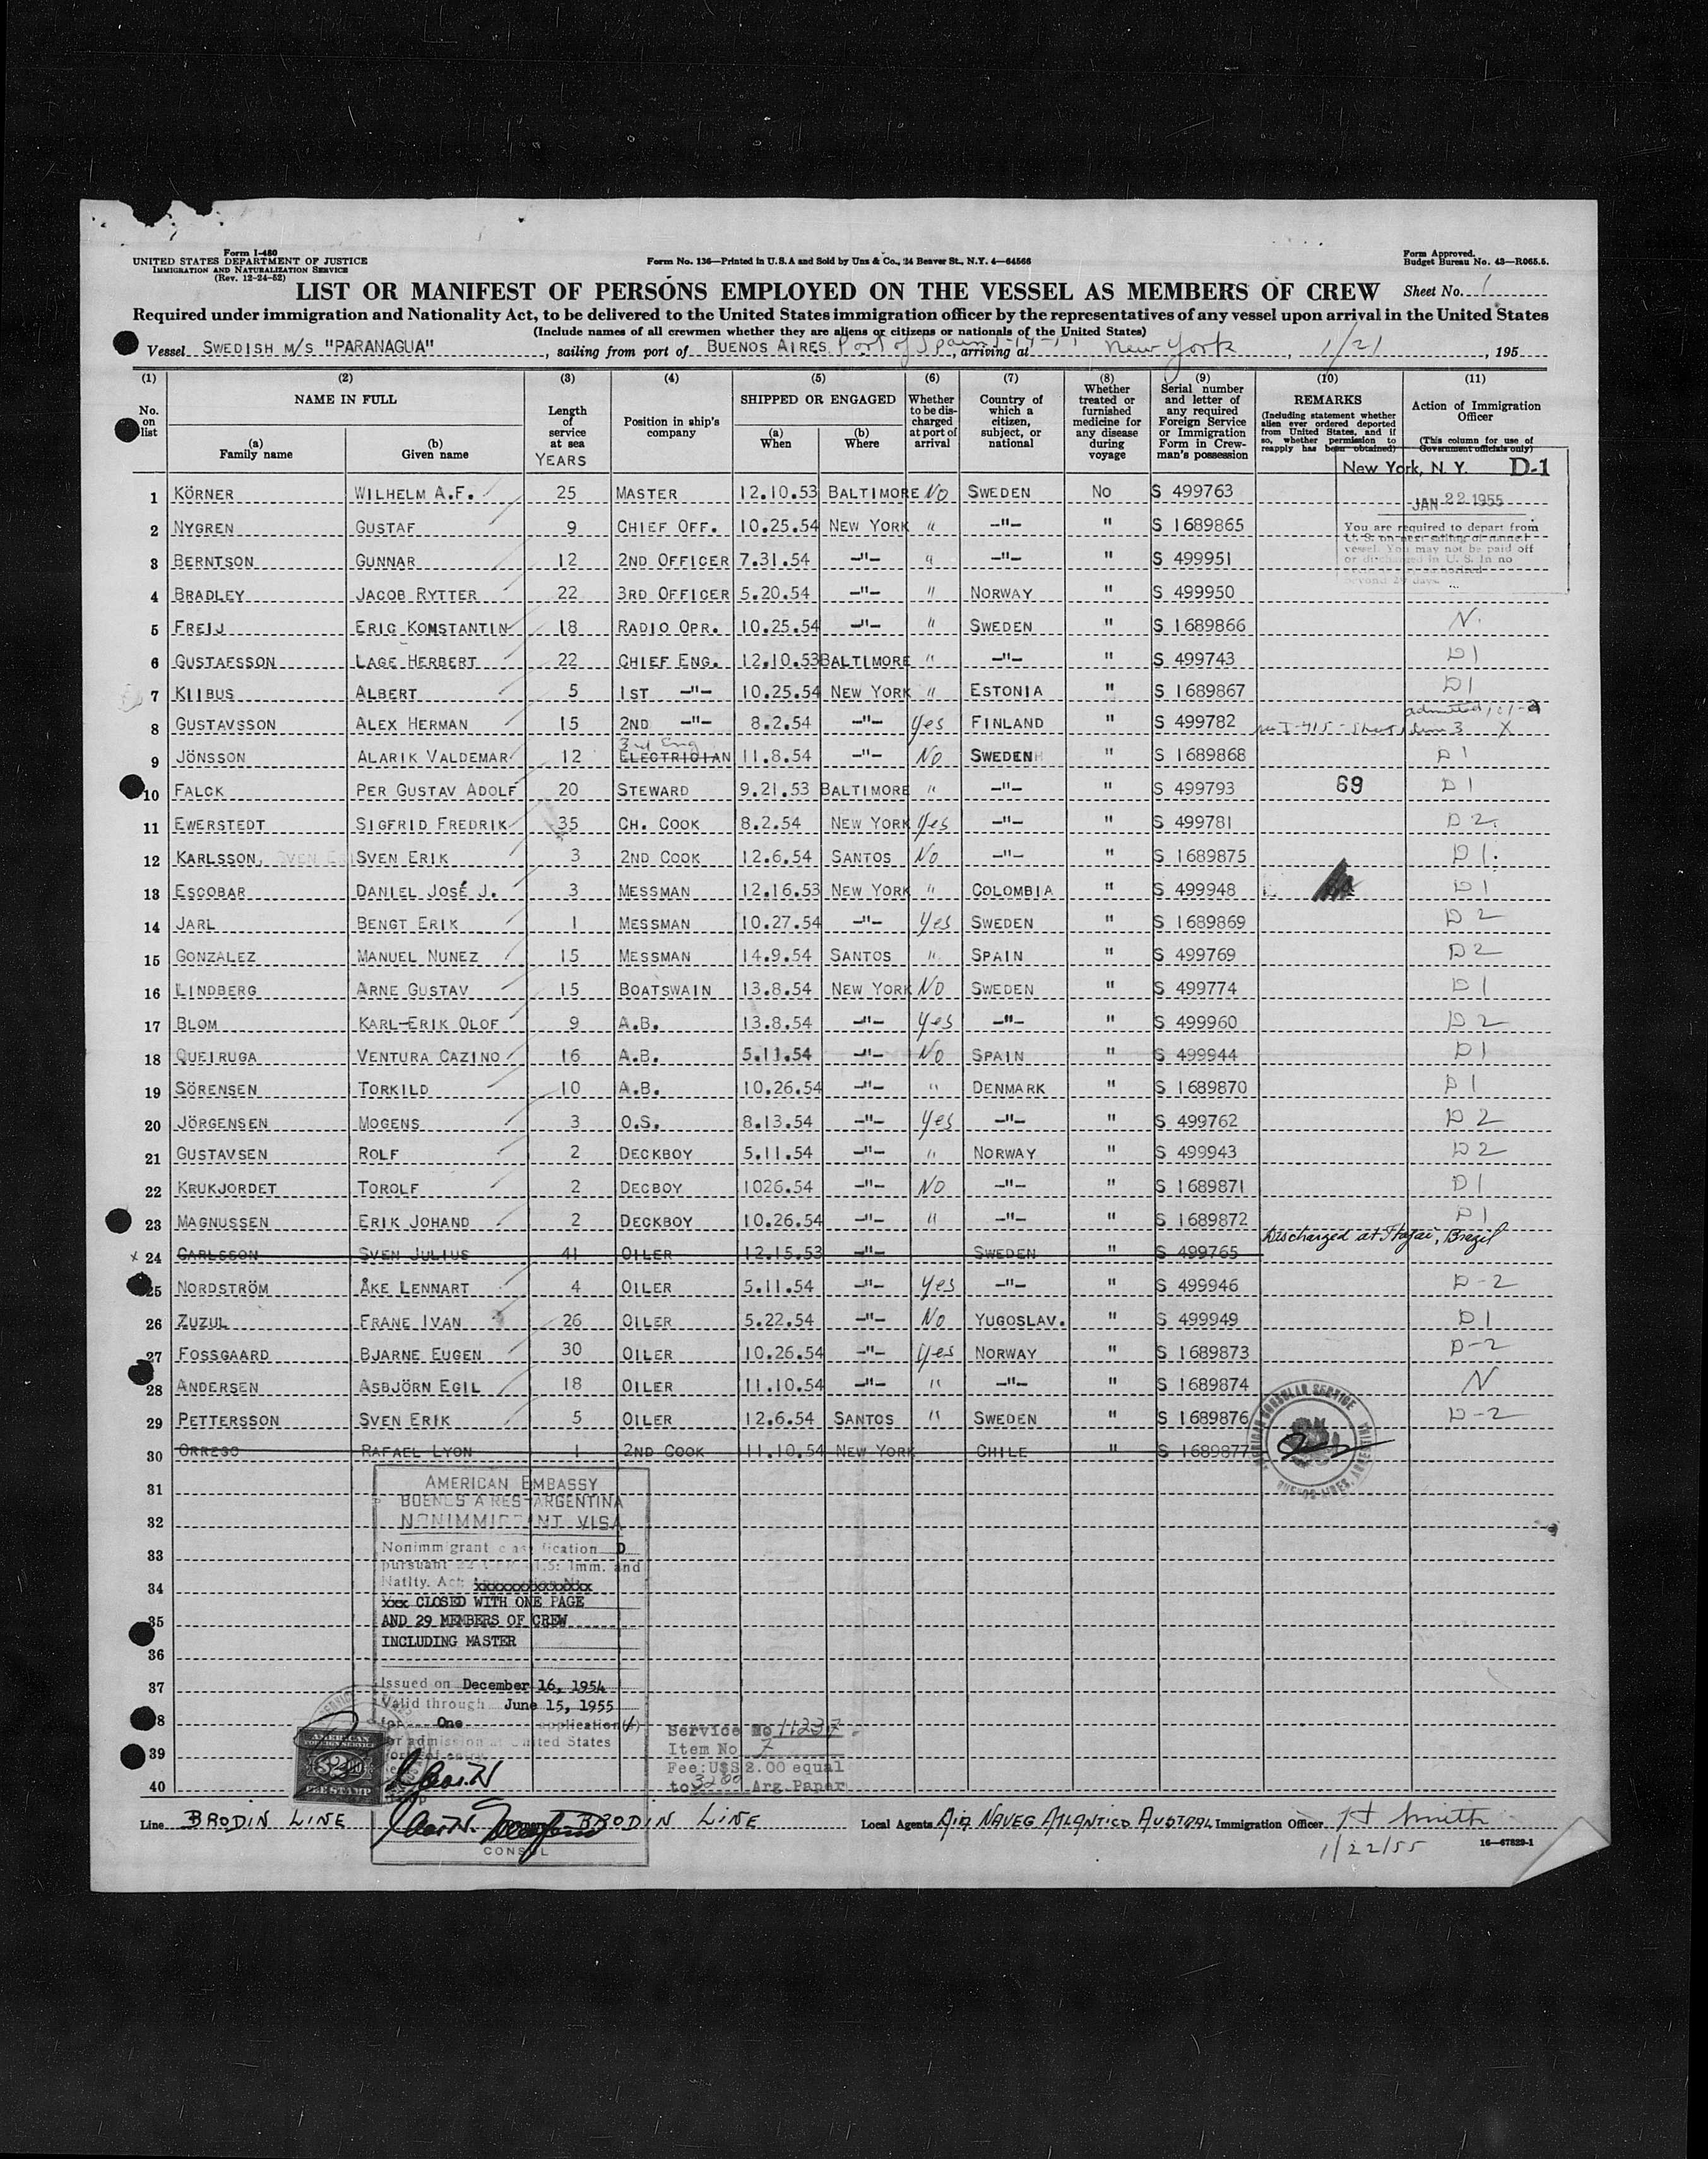 Form I-480
UNITED STATES DEPARTMENT OF JUSTICE
IMMIGRATION AND NATURALIZATION SERVICE
(Rev. 12-24-52)
Form No. 136—Printed in U.S.A and Sold by Unz & Co., 24 Beaver St., N.Y. 4—64566
Form Approved.
Budget Bureau No. 43—R065.5.
LIST OR MANIFEST OF PERSONS EMPLOYED ON THE VESSEL AS MEMBERS OF CREW
Sheet No. 1
Required under immigration and Nationality Act, to be delivered to the United States immigration officer by the representatives of any vessel upon arrival in the United States
(Include names of all crewmen whether they are aliens or citizens or nationals of the United States)
Vessel SWEDISH M/S "PARANAGUA", sailing from port of BUENOS AIRES Port of Spain, arriving at New York, 1/21, 195
(1) (2) (3) (4) (5) (6) (7) (8) (9) (10) (11)
No. on list
NAME IN FULL
(a) Family name
(b) Given name
Length of service at sea
YEARS
Position in ship's company
SHIPPED OR ENGAGED
(a) When
(b) Where
Whether to be discharged at port of arrival
Country of which a citizen, subject, or national
Whether treated or furnished medicine for any disease during voyage
Serial number and letter of any required Foreign Service or Immigration Form in Crewman's possession
REMARKS
(Including statement whether alien ever ordered deported from United States, and if so, whether permission to reapply has been obtained)
Action of Immigration Officer
(This column for use of Government officials only)
New York, N. Y. D-1
JAN 22 1955
You are required to depart from
U. S. on next sailing of named
vessel. You may not be paid off
or discharged in U. S. In no
beyond 29 days.
1 KÖRNER WILHELM A.F. 25 MASTER 12.10.53 BALTIMORE No SWEDEN No S 499763
2 NYGREN GUSTAF 9 CHIEF OFF. 10.25.54 NEW YORK " —"— " S 1689865
3 BERNTSON GUNNAR 12 2ND OFFICER 7.31.54 —"— " —"— " S 499951
4 BRADLEY JACOB RYTTER 22 3RD OFFICER 5.20.54 —"— " NORWAY " S 499950
5 FREIJ ERIC KONSTANTIN 18 RADIO OPR. 10.25.54 —"— " SWEDEN " S 1689866 N.
6 GUSTAFSSON LAGE HERBERT 22 CHIEF ENG. 12.10.53 BALTIMORE " —"— " S 499743 D1
7 KIIBUS ALBERT 5 1ST —"— 10.25.54 NEW YORK " ESTONIA " S 1689867 D1
8 GUSTAVSSON ALEX HERMAN 15 2ND —"— 8.2.54 —"— Yes FINLAND " S 499782 I-415 - Sheet 1 line 3 X
admitted
9 JÖNSSON ALARIK VALDEMAR 12 3rd Eng ELECTRICIAN 11.8.54 —"— No SWEDEN " S 1689868 D1
10 FALCK PER GUSTAV ADOLF 20 STEWARD 9.21.53 BALTIMORE " —"— " S 499793 69 D1
11 EWERSTEDT SIGFRID FREDRIK 35 CH. COOK 8.2.54 NEW YORK Yes —"— " S 499781 D2.
12 KARLSSON, SVEN ERIK 3 2ND COOK 12.6.54 SANTOS No —"— " S 1689875 D1.
13 ESCOBAR DANIEL JOSÉ J. 3 MESSMAN 12.16.53 NEW YORK " COLOMBIA " S 499948 D1
14 JARL BENGT ERIK 1 MESSMAN 10.27.54 —"— Yes SWEDEN " S 1689869 D2
15 GONZALEZ MANUEL NUNEZ 15 MESSMAN 14.9.54 SANTOS " SPAIN " S 499769 D2
16 LINDBERG ARNE GUSTAV 15 BOATSWAIN 13.8.54 NEW YORK No SWEDEN " S 499774 D1
17 BLOM KARL-ERIK OLOF 9 A.B. 13.8.54 —"— Yes —"— " S 499960 D2
18 QUEIRUGA VENTURA CAZINO 16 A.B. 5.11.54 —"— No SPAIN " S 499944 D1
19 SÖRENSEN TORKILD 10 A.B. 10.26.54 —"— " DENMARK " S 1689870 D1
20 JÖRGENSEN MOGENS 3 O.S. 8.13.54 —"— Yes —"— " S 499762 D2
21 GUSTAVSEN ROLF 2 DECKBOY 5.11.54 —"— " NORWAY " S 499943 D2
22 KRUKJORDET TOROLF 2 DECBOY 1026.54 —"— No —"— " S 1689871 D1
23 MAGNUSSEN ERIK JOHAND 2 DECKBOY 10.26.54 —"— " —"— " S 1689872 D1
x 24 CARLSSON SVEN JULIUS 41 OILER 12.15.53 —"— SWEDEN " S 499765 Discharged at Itajai, Brazil
25 NORDSTRÖM ÅKE LENNART 4 OILER 5.11.54 —"— Yes —"— " S 499946 D-2
26 ZUZUL FRANE IVAN 26 OILER 5.22.54 —"— No YUGOSLAV. " S 499949 D1
27 FOSSGAARD BJARNE EUGEN 30 OILER 10.26.54 —"— Yes NORWAY " S 1689873 D-2
28 ANDERSEN ASBJÖRN EGIL 18 OILER 11.10.54 —"— " —"— " S 1689874 N
29 PETTERSSON SVEN ERIK 5 OILER 12.6.54 SANTOS " SWEDEN " S 1689876 D-2
30 ORREGO RAFAEL LYON 1 2ND COOK 11.10.54 NEW YORK CHILE " S 1689877
AMERICAN CONSULAR SERVICE
BUENOS AIRES, ARGENTINA
31
32
33
34
35
36
37
38
39
40
AMERICAN EMBASSY
BUENOS AIRES-ARGENTINA
NONIMMIGRANT VISA
Nonimmigrant classification D
pursuant Imm. and
Natlty. Act
xxx CLOSED WITH ONE PAGE
AND 29 MEMBERS OF CREW
INCLUDING MASTER
Issued on December 16, 1954
Valid through June 15, 1955
for One application(s)
for admission at United States
CONSUL
AMERICAN
FOREIGN SERVICE
$2.00
FEE STAMP
Service No 11237
Item No 7
Fee: U$S 2.00 equal
to Arg. Paper
Line BRODIN LINE BRODIN LINE Local Agents AIA NAVEG ATLANTICO AUSTRAL Immigration Officer Smith
1/22/55
16—67829-1